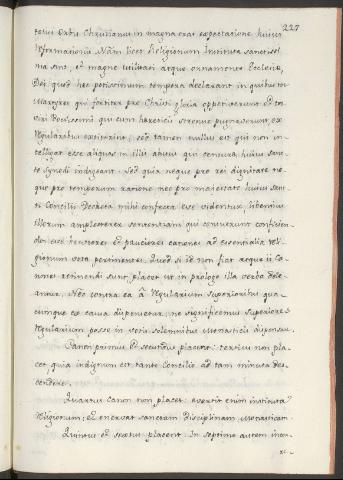 227
totus Orbis Christianus in magna erat expectatione huius
Reformationis. Nam licet Religionum Instituta sanctissi-
ma sint, et magne utilitati atque ornamento Ecclesiæ,
Dei quod hec potissimum tempora declarant in quibus tot
Martyres qui fortiter pro Christi gloria oppetiverunt et tot
viri Doctissimi qui cum hæreticis strenue pugnaverunt, ex
Regularibus extiterint, sed tamen nullus est qui non in-
telligat esse aliquos in illis abusus qui censura huius sanc-
te Synodi indigeant. Sed quia neque pro rei dignitate ne-
que pro temporum ratione nec pro maiestate huius sanc-
ti Concilii Decreta mihi confecta esse videntur, libentius
illorum amplecterer sententiam qui censuerunt conficien-
dos esse breviores et pauciores canones ad essentialia reli-
gionum vota pertinentes. Quod si id non fiat atque ii Ca-
nones retinendi sunt, placet ut in prologo illa verba dele-
antur. Nec contra ea à Regularium Superioribus qua-
cunque ex causa dispensetur, ne significemus Superiores
Regularium posse in votis solemnibus Monasticis dispensare.
Canon primus et secundus placent: tertius non pla-
cet quia indignum est tanto Concilio ad tam minuta des-
cendere.
Quartus canon non placet: evertit enim instituta
Religionum; et enervat sanctam disciplinam Monasticam.
Quintus et sextus placent. In septimo autem